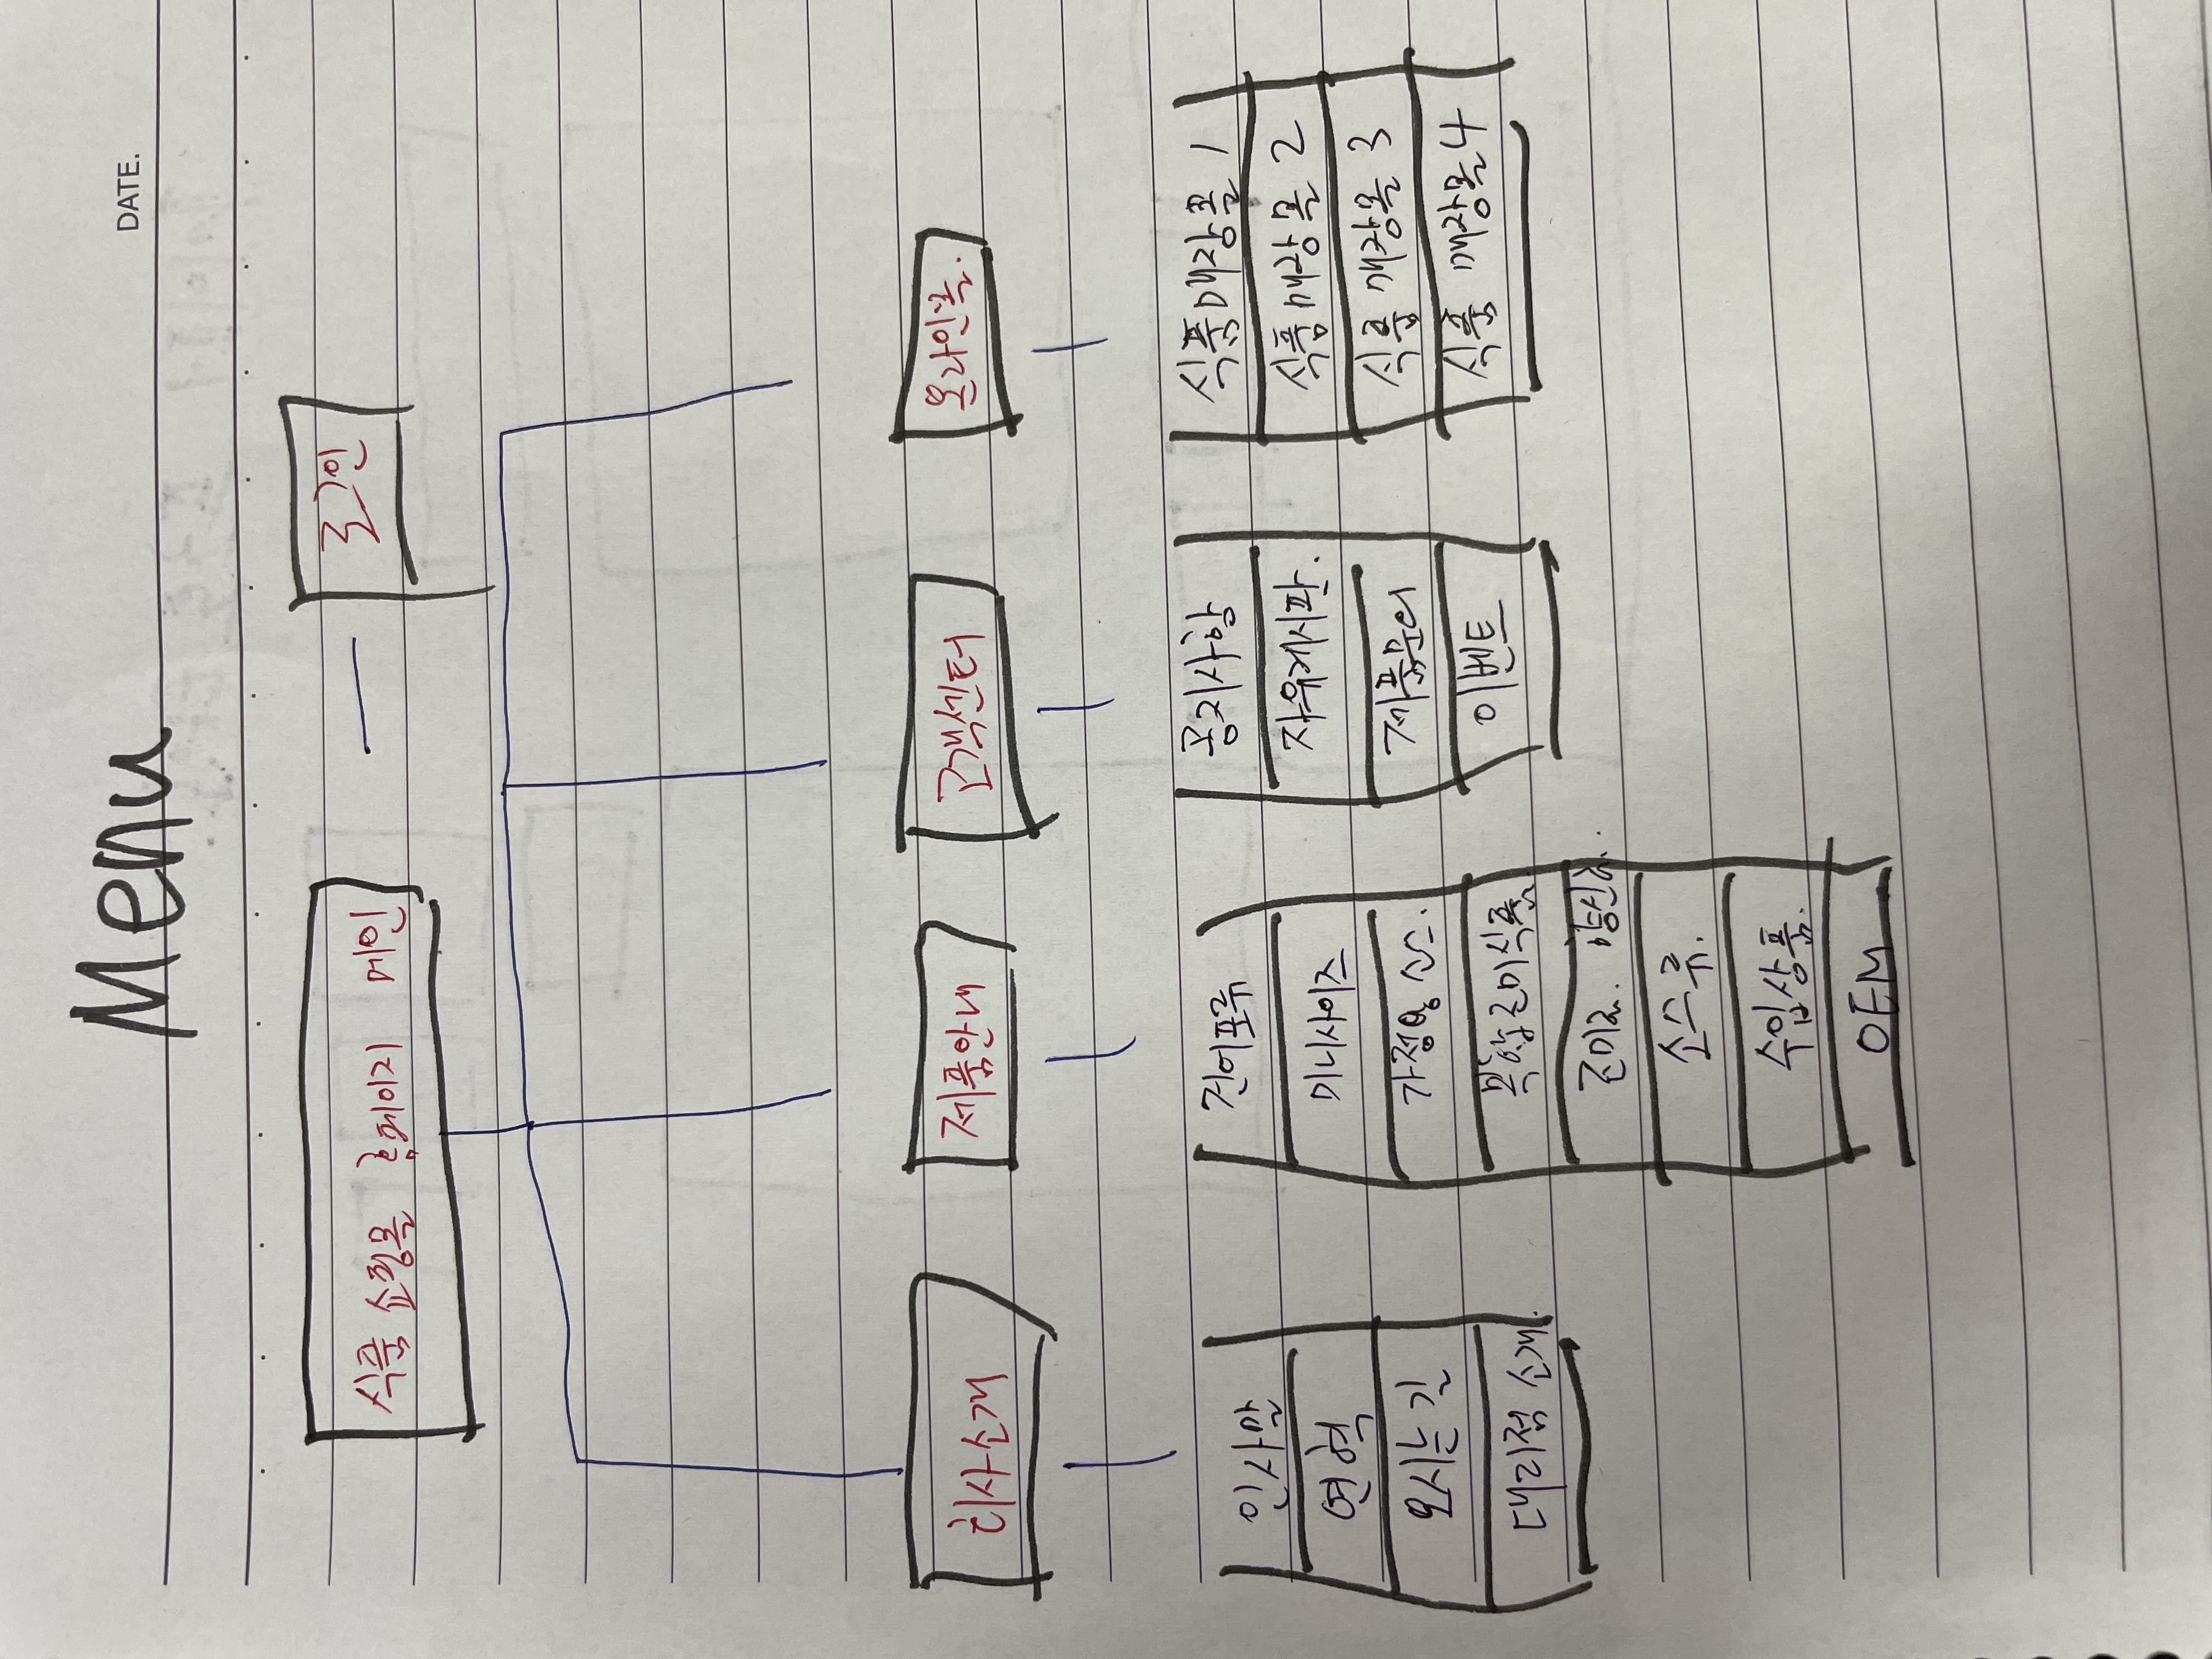 Menu
DATE.
식품 쇼핑몰 홈페이지 메인
로그인
회사소개
제품안내
고객센터
온라인몰.
인사말
연혁
오시는길
대리점 소개.
건어포류
미니사이즈
가정용 소스.
복합조미식품
조미료. 향신료.
소스류.
수입상품.
OEM
공지사항
자유게시판.
제품문의
이벤트
식품매장몰 1
식품매장몰 2
식품 매장몰 3
식품 매장몰4